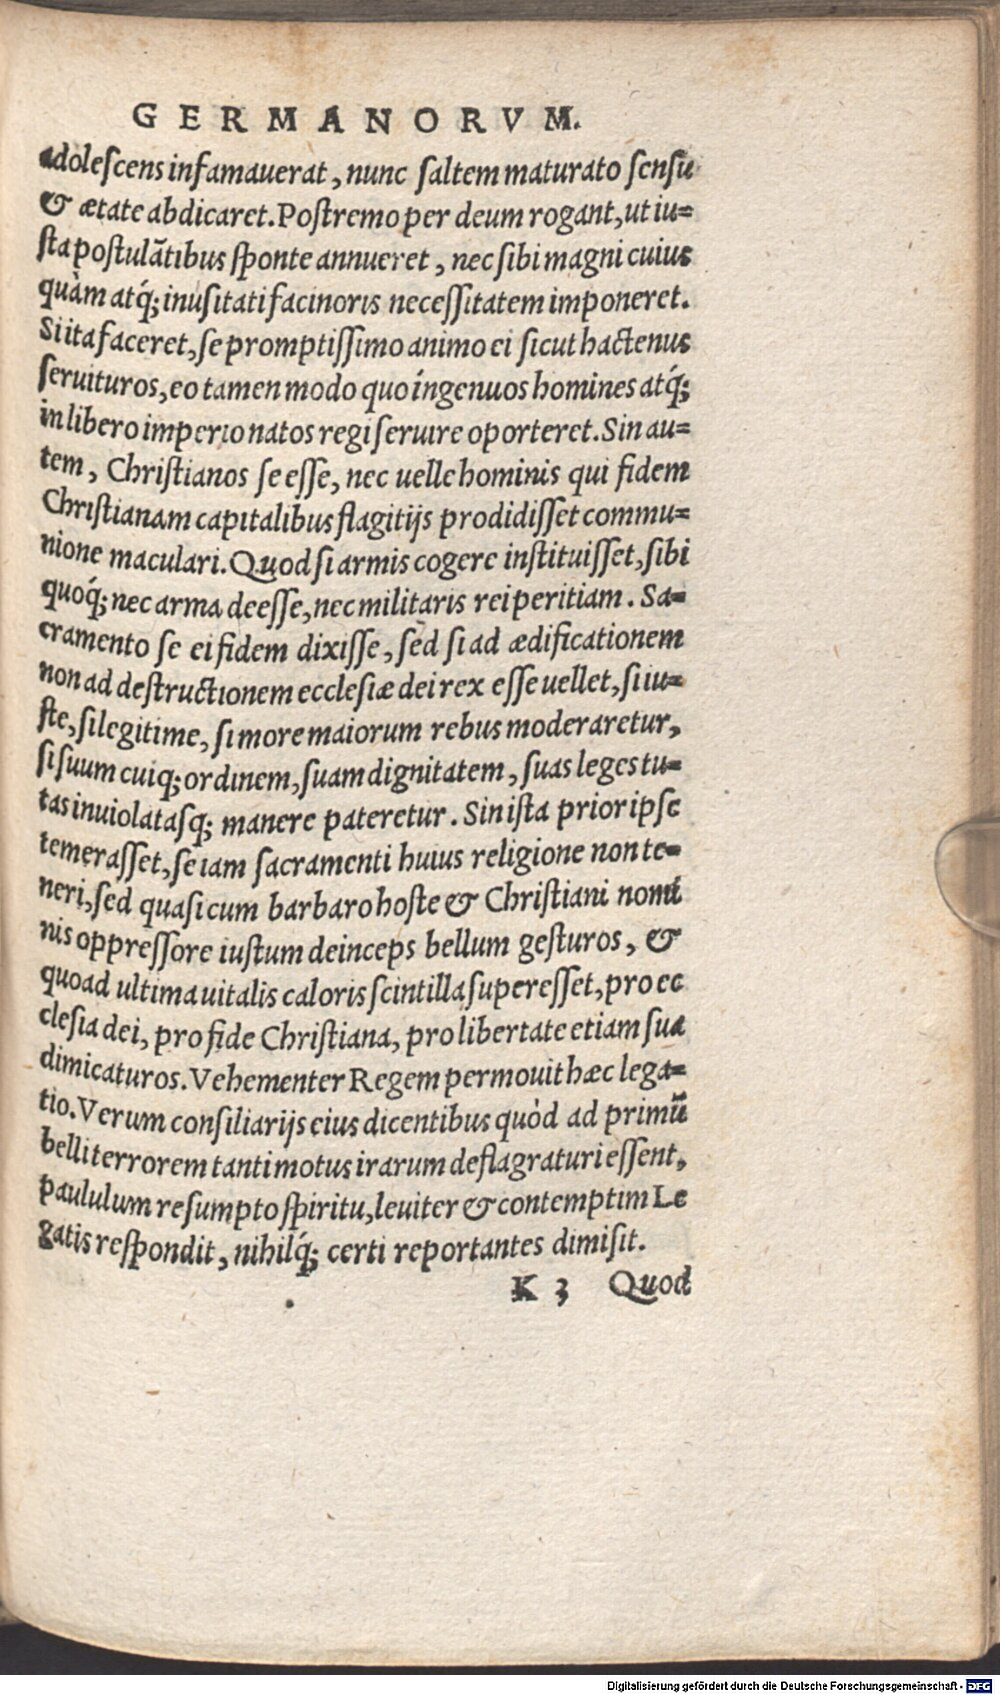 GERMANORVM.
adolescens infamauerat, nunc saltem maturato sensu
& ætate abdicaret. Postremo per deum rogant, ut iu=
sta postulātibus sponte annueret, nec sibi magni cuius
quàm atq́; inusitati facinoris necessitatem imponeret.
Si ita faceret, se promptissimo animo ei sicut hactenus
seruituros, eo tamen modo quo ingenuos homines atq́;
in libero imperio natos regi seruire oporteret. Sin au=
tem, Christianos se esse, nec uelle hominis qui fidem
Christianam capitalibus flagitijs prodidisset commu=
nione maculari. Quod si armis cogere instituisset, sibi
quoq́; nec arma deesse, nec militaris rei peritiam. Sa=
cramento se ei fidem dixisse, sed si ad ædificationem
non ad destructionem ecclesiæ dei rex esse uellet, si iu=
ste, si legitime, si more maiorum rebus moderaretur,
si suum cuiq; ordinem, suam dignitatem, suas leges tu=
tas inuiolatasq; manere pateretur. Sin ista prior ipse
temerasset, se iam sacramenti huius religione non te=
neri, sed quasi cum barbaro hoste & Christiani nomi
nis oppressore iustum deinceps bellum gesturos, &
quoad ultima uitalis caloris scintilla superesset, pro ec
clesia dei, pro fide Christiana, pro libertate etiam sua
dimicaturos. Vehementer Regem permouit hæc lega=
tio. Verum consiliarijs eius dicentibus quòd ad primū
belli terrorem tanti motus irarum deflagraturi essent,
paululum resumpto spiritu, leuiter & contemptim Le
gatis respondit, nihilq́; certi reportantes dimisit.
K 3 Quod
Digitalisierung gefördert durch die Deutsche Forschungsgemeinschaft - DFG